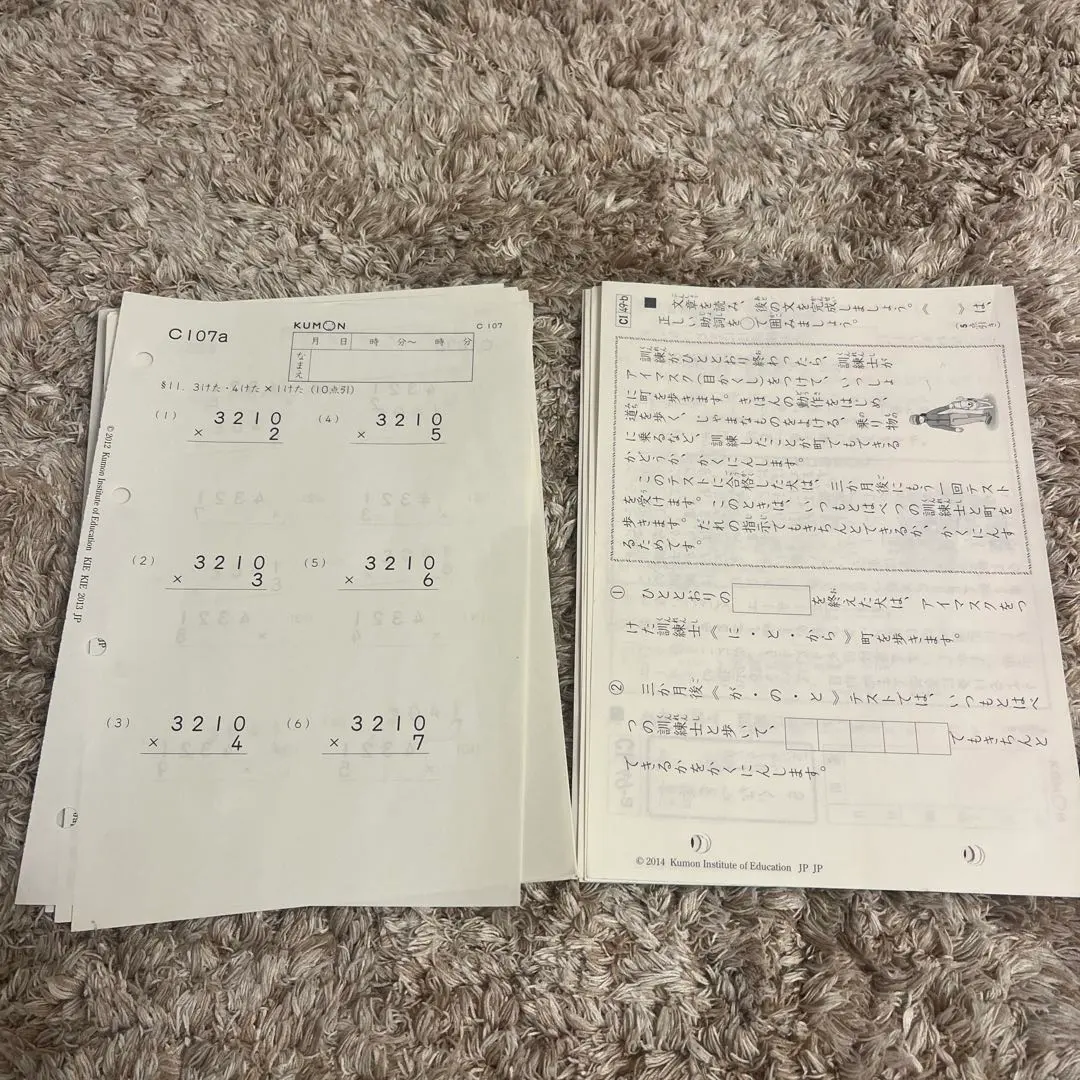 C107a
KUMON
C 107
月 日 時 分〜 時 分
なまえ
§11. 3けた・4けた×1けた (10点引)
(1) 3210
× 2
(4) 3210
× 5
(2) 3210
× 3
(5) 3210
× 6
(3) 3210
× 4
(6) 3210
× 7
© 2012 Kumon Institute of Education KIE KIE 2013 JP
CI 49-b
■ 文章を読み、後の文を完成しましょう。《 》は、
正しい助詞を○で囲みましょう。
(5点引き)
訓練がひととおり終わったら、訓練士が
アイマスク(目かくし)をつけて、いっしょ
に町を歩きます。きほんの動作をはじめ、
道を歩く、じゃまなものをよける、乗り物
に乗るなど、訓練したことが町でもできる
かどうか、かくにんします。
このテストに合格した犬は、三か月後にもう一回テスト
を受けます。このときは、いつもとはべつの訓練士と町を
歩きます。だれの指示でもきちんとできるか、かくにんす
るためです。
① ひととおりの を終えた犬は、アイマスクをつ
けた訓練士《に・と・から》町を歩きます。
② 三か月後《が・の・と》テストでは、いつもとはべ
つの訓練士と歩いて、 でもきちんと
できるかをかくにんします。
© 2014 Kumon Institute of Education JP JP